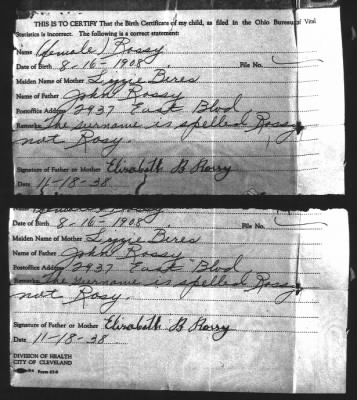 THIS IS TO CERTIFY That the Birth Certificate of my child, as filed in the Ohio Bureau of Vital
Statistics is incorrect. The following is a correct statement:
Name (Female) Rossy
Date of Birth 8-16-1908 File No.
Maiden Name of Mother Lizzie Beres
Name of Father John Rossy
Postoffice Address 2937 East Blvd
Remarks The surname is spelled Rossy
not Rosy.
Signature of Father or Mother Elizabeth B
Date 11-18-38
Name (Female) Rossy
Date of Birth 8-16-1908 File No.
Maiden Name of Mother Lizzie Beres
Name of Father John Rossy
Postoffice Address 2937 East Blvd
Remarks The surname is spelled Rossy
not Rosy.
Signature of Father or Mother Elizabeth B
Date 11-18-38
DIVISION OF HEALTH
CITY OF CLEVELAND
Form